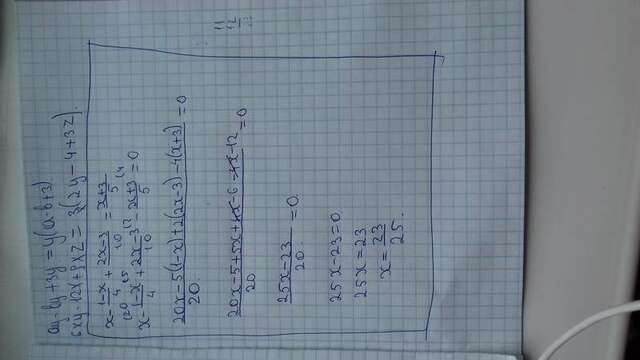 ay-by+3y=y(a-b+3)
6xy-12x+9xz=3(2y-4+3z).
x-\frac{1-x}{4}+\frac{2x-3}{10}=\frac{x+3}{5}
x-\frac{1-x}{4}+\frac{2x-3}{10}-\frac{x+3}{5}=0
\frac{20x-5(1-x)+2(2x-3)-4(x+3)}{20}=0
\frac{20x-5+5x+4x-6-4x-12}{20}=0
\frac{25x-23}{20}=0
25x-23=0
25x=23
x=\frac{23}{25}.
11
12